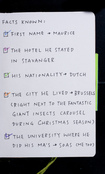 FACTS KNOWN:
FIRST NAME → MAURICE
THE HOTEL HE STAYED
IN STAVANGER
HIS NATIONALITY → DUTCH
THE CITY HE LIVED → BRUSSELS
(RIGHT NEXT TO THE FANTASTIC
GIANT INSECTS CAROUSEL
DURING CHRISTMAS SEASON)
THE UNIVERSITY WHERE HE
DID HIS MA'S →